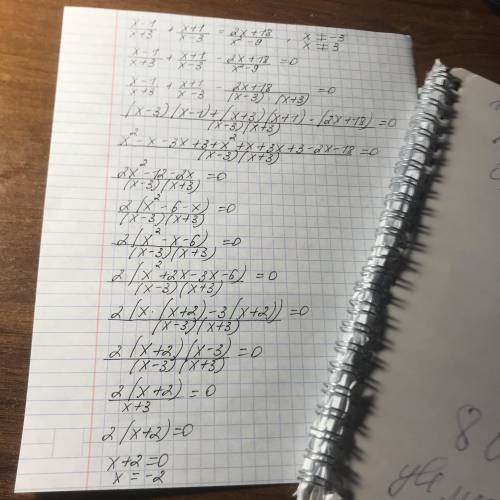 (x-1)/(x+3) + (x+1)/(x-3) = (2x+18)/(x²-9) , x ≠ -3
x ≠ 3
(x-1)/(x+3) + (x+1)/(x-3) - (2x+18)/(x²-9) = 0
(x-1)/(x+3) + (x+1)/(x-3) - (2x+18)/((x-3)(x+3)) = 0
((x-3)(x-1)+(x+3)(x+1)-(2x+18))/((x-3)(x+3)) = 0
(x²-x-3x+3+x²+x+3x+3-2x-18)/((x-3)(x+3)) = 0
(2x²-12-2x)/((x-3)(x+3)) = 0
2(x²-6-x)/((x-3)(x+3)) = 0
2(x²-x-6)/((x-3)(x+3)) = 0
2(x²+2x-3x-6)/((x-3)(x+3)) = 0
2(x·(x+2)-3(x+2))/((x-3)(x+3)) = 0
2(x+2)(x-3)/((x-3)(x+3)) = 0
2(x+2)/(x+3) = 0
2(x+2)=0
x+2=0
x=-2
8